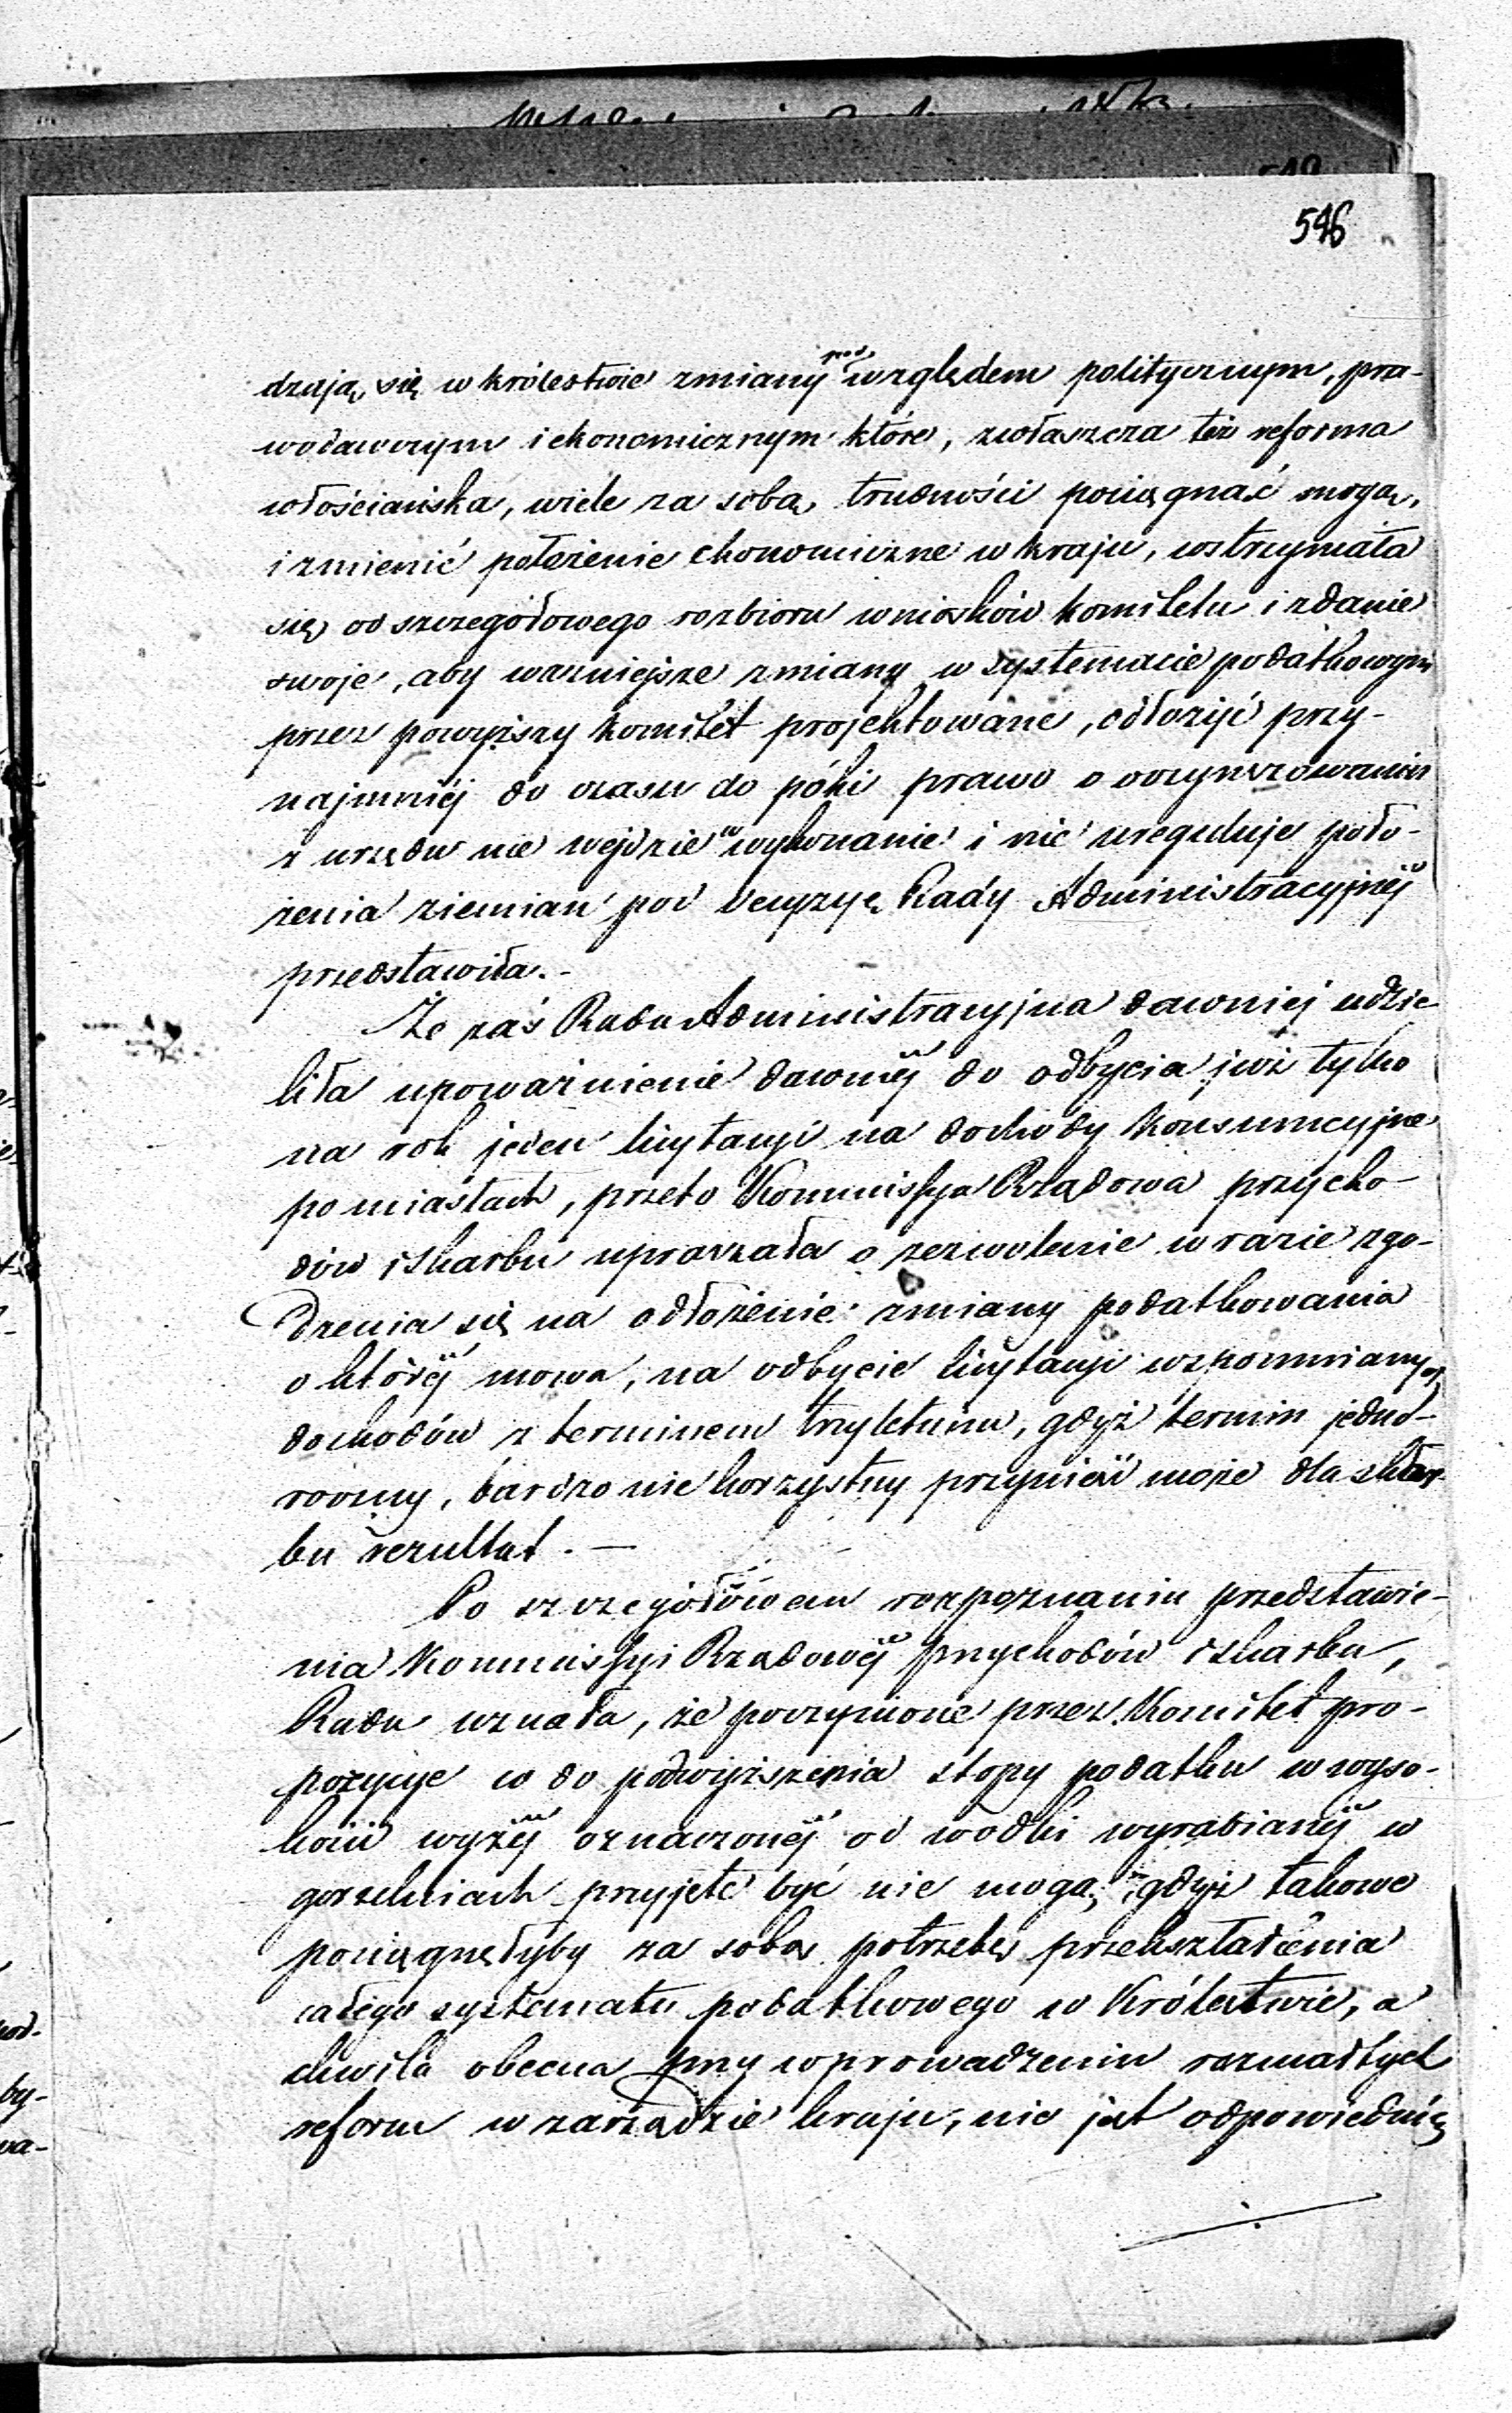 546
dzają się w królestwie zmiany pod względem politycznym, pra-
wodawczym i ekonomicznym które, zwłaszcza też reforma
włościańska, wiele za sobą trudności pociągnąć mogą,
i zmienić położenie ekonomiczne w kraju, wstrzymała
się od szczegółowego rozbioru wniosków komitetu i zdanie
swoje, aby ważniejsze zmiany w systemacie podatkowym
przez powyższy komitet projektowane, odłożyć przy-
najmniéj do czasu do póki prawo o oczynszowaniu
z urzędu nie wejdzie w wykonanie i nie ureguluje poło-
żenia ziemian pod decyzyę Rady Administracyjnéj
przedstawiła. -
Że zaś Rada Administracyjna dawniej udzie
liła upoważnienie dawniéj do odbycia już tylko
na rok jeden licytacyi na dochody konsumcyjne
po miastach, przeto Kommissya Rządowa przycho-
dów i skarbu upraszała o zezwolenie w razie zgo-
dzenia się na odłożenie zmiany podatkowania
o któréj mowa, na odbycie licytacyi wzpomnianych
dochodów z terminem trzyletnim, gdyż termin jedno-
roczny, bardzo nie korzystny przynieść może dla skar-
bu rezultat. —
Po szczegółowem rozpoznaniu przedstawie-
nia Kommissyi Rządowéj przychodów i skarbu,
Rada uznała, że poczynione przez Komitet pro-
pozycye co do podwyższenia stopy podatku w wyso-
kości wyżéj oznaczonéj od wódki wyrabianéj w
gorzelniach przyjęte być nie mogą, gdyż takowe
pociągnęłyby za sobą potrzebę przekształcenia
całego systematu podatkowego w Królestwie, a
chwila obecna przy wprowadzeniu rozmaitych
reform w zarządzie kraju, nie jest odpowiednią